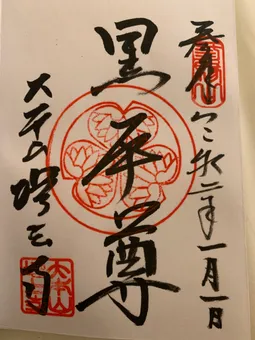 奉拝 令和二年一月一日
黒本尊
大本山増上寺